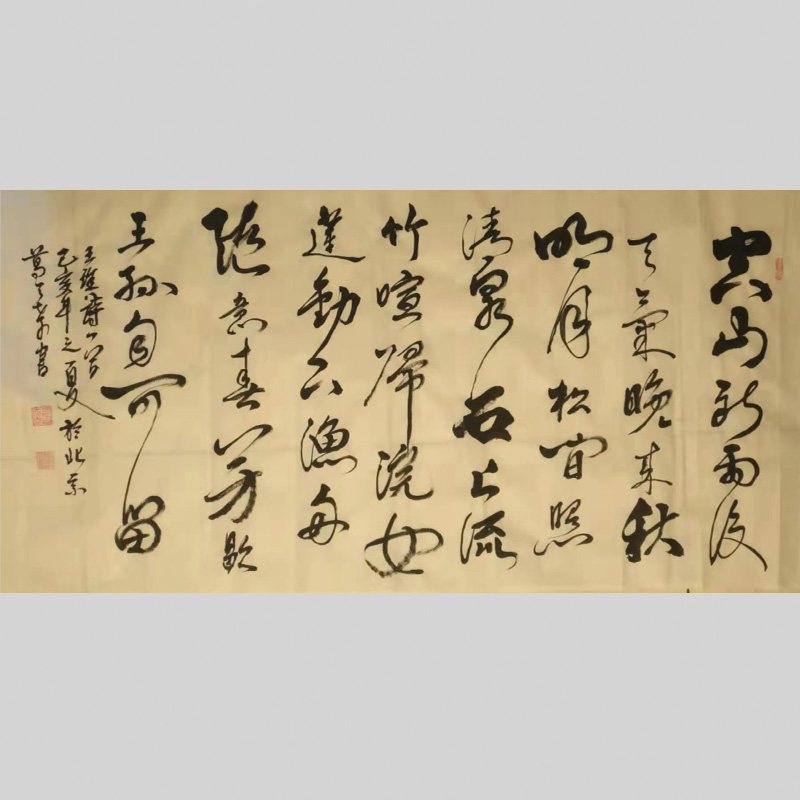 空山新雨後
天氣晚來秋
明月松间照
清泉石上流
竹喧歸浣女
蓮動下漁舟
随意春芳歇
王孫自可留
王維詩一首
己亥年之夏於北京
書